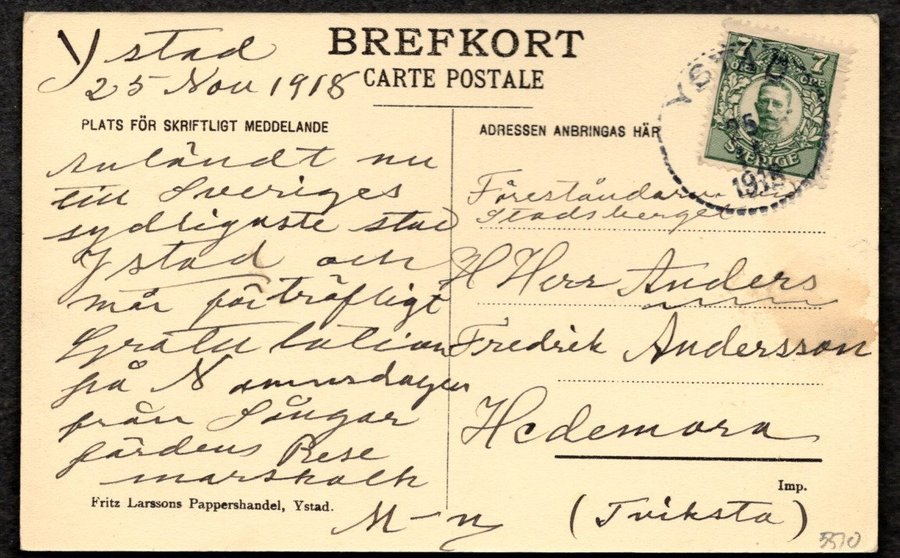 Ystad
25 Nov 1918
BREFKORT
CARTE POSTALE
PLATS FÖR SKRIFTLIGT MEDDELANDE
ADRESSEN ANBRINGAS HÄR
7 7
ÖRE ÖRE
SVERIGE
YSTAD
25
1918
Anländt nu
till Sveriges
sydligaste stad
Ystad och
mår förträfligt
Gratulation
på Namnsdagen
från Sångar
färdens Rese
marskalk
M-n
Föreståndaren
Stadsberget
H Herr Anders
Fredrik Andersson
Hedemora
(Tviksta)
Fritz Larssons Pappershandel, Ystad.
Imp.
5510